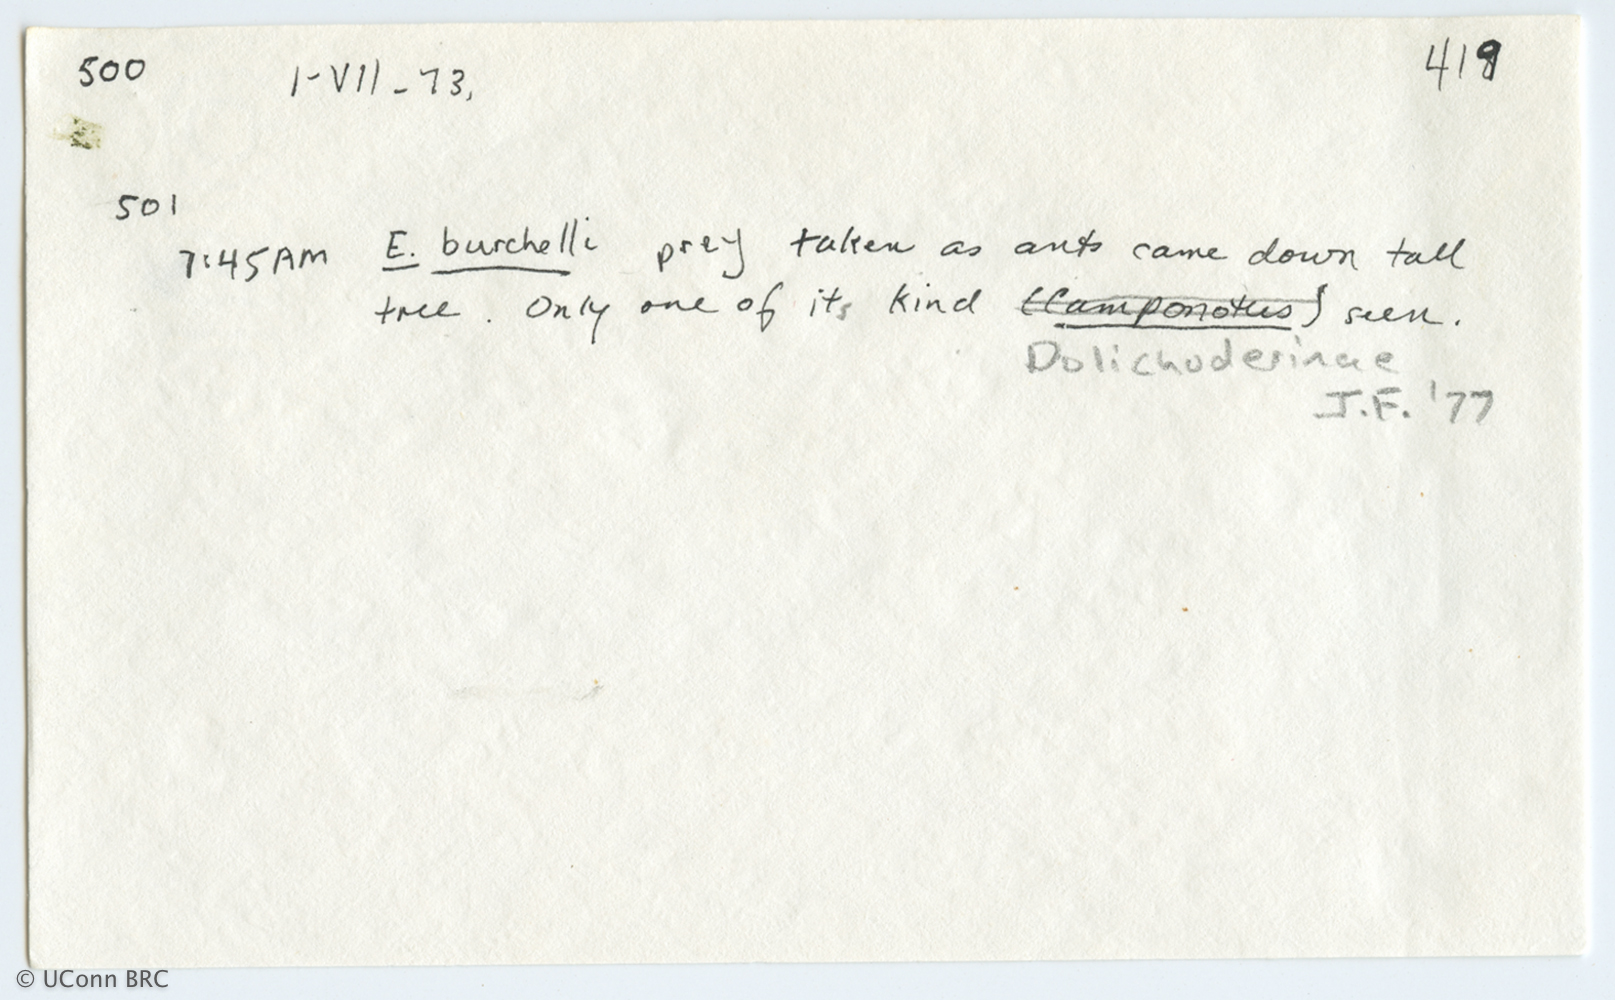 500 1-VII-73. 419
501
7:45AM E. burchelli prey taken as ants came down tall
tree. Only one of its kind (Camponotus) seen.
Dolichoderinae
J.F. '77
© UConn BRC